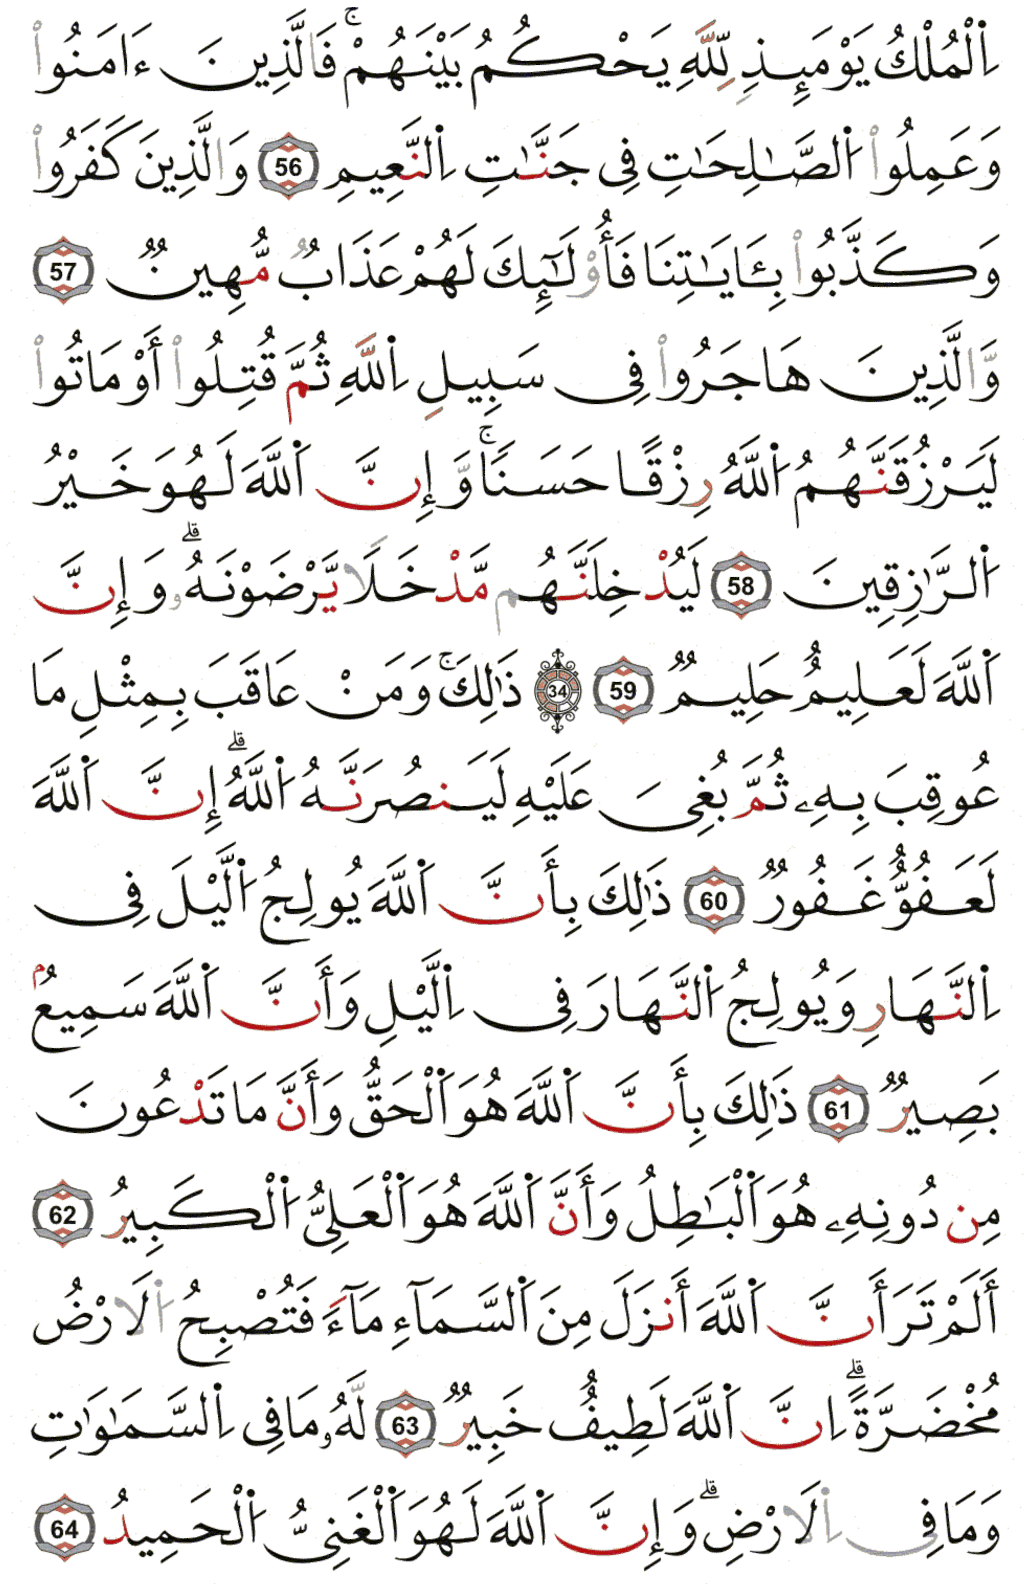 اِ۬لْمُلْكُ يَوْمَئِذٍ لِّلَّهِ يَحْكُمُ بَيْنَهُمْۚ فَالَّذِينَ ءَامَنُواْ
وَعَمِلُواْ اُ۬لصَّٰلِحَٰتِ فِى جَنَّٰتِ اِ۬لنَّعِيمِ 56 وَالَّذِينَ كَفَرُواْ
وَكَذَّبُواْ بِـَٔايَٰتِنَا فَأُوْلَٰٓئِكَ لَهُمْ عَذَابٌ مُّهِينٌ 57
وَّالَّذِينَ هَاجَرُواْ فِى سَبِيلِ اِ۬للَّهِ ثُمَّ قُتِلُواْ أَوْ مَاتُواْ
لَيَرْزُقَنَّهُمُ اُ۬للَّهُ رِزْقًا حَسَنًاۚ وَّإِنَّ اَ۬للَّهَ لَهُوَ خَيْرُ
اُ۬لرَّٰزِقِينَ 58 لَيُدْخِلَنَّهُم مَّدْخَلًا يَّرْضَوْنَهُۥۗ وَإِنَّ
اَ۬للَّهَ لَعَلِيمٌ حَلِيمٌ 59 34 ذَٰلِكَۚ وَمَنْ عَاقَبَ بِمِثْلِ مَا
عُوقِبَ بِهِۦ ثُمَّ بُغِىَ عَلَيْهِ لَيَنصُرَنَّهُ اُ۬للَّهُۗ إِنَّ اَ۬للَّهَ
لَعَفُوٌّ غَفُورٌ 60 ذَٰلِكَ بِأَنَّ اَ۬للَّهَ يُولِجُ اُ۬لَّيْلَ فِى
اِ۬لنَّهَارِ وَيُولِجُ اُ۬لنَّهَارَ فِى اِ۬لَّيْلِ وَأَنَّ اَ۬للَّهَ سَمِيعُۢ
بَصِيرٌ 61 ذَٰلِكَ بِأَنَّ اَ۬للَّهَ هُوَ اَ۬لْحَقُّ وَأَنَّ مَا تَدْعُونَ
مِن دُونِهِۦ هُوَ اَ۬لْبَٰطِلُ وَأَنَّ اَ۬للَّهَ هُوَ اَ۬لْعَلِىُّ اُ۬لْكَبِيرُ 62
أَلَمْ تَرَ أَنَّ اَ۬للَّهَ أَنزَلَ مِنَ اَ۬لسَّمَآءِ مَآءً فَتُصْبِحُ اُ۬لَارْضُ
مُخْضَرَّةًۗ اِنَّ اَ۬للَّهَ لَطِيفٌ خَبِيرٌ 63 لَّهُۥ مَا فِى اِ۬لسَّمَٰوَٰتِ
وَمَا فِى اِ۬لَارْضِۗ وَإِنَّ اَ۬للَّهَ لَهُوَ اَ۬لْغَنِىُّ اُ۬لْحَمِيدُ 64